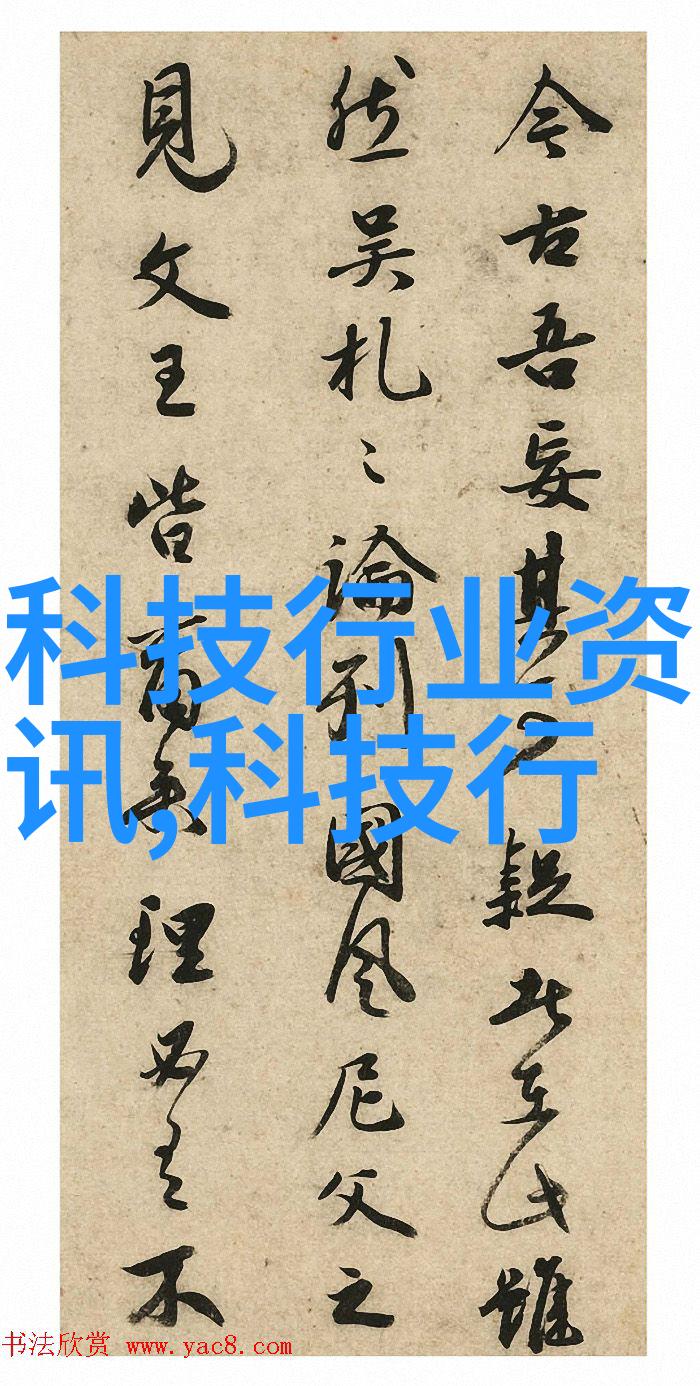 今古吾妄其疑在此雖
然吴札〻論列國風尼父之
見文王皆理有不
科技行业资
讯,科技行
书法欣赏 www.yac8.com